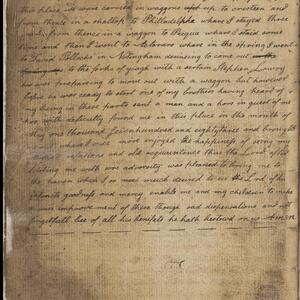 this place we were carried in waggons up to cresteen and
from thence in a shallop to Philladelpha where I stayed three
weeks from thence in a waggon to Pequa where I staid some
time and then I went to where in the spring I went
to David Pollocks in Notingham designing to come out
to the forks of yough with a certain Stephen Lowry
he was preparing to move out with a waggon but however
before he was ready to start one of my brothers having heard of
my being in these parts sent a man and a hors in quest of me
and with difficulty found me in this place in the month of
May one thousand sevenhundred and eightythree and brought
where I once more enjoyed the happiness of seeing my
relations and old acquaintance thus the Lord after
me with sore adversity was pleased to bring
the haven where I so much desired to see the Lord of his
infinite goodness and mercy enable me and my children to make
improvement of these though sad dispensations and not
forgetfull bee of all his benifets he hath bestowed on us Amen